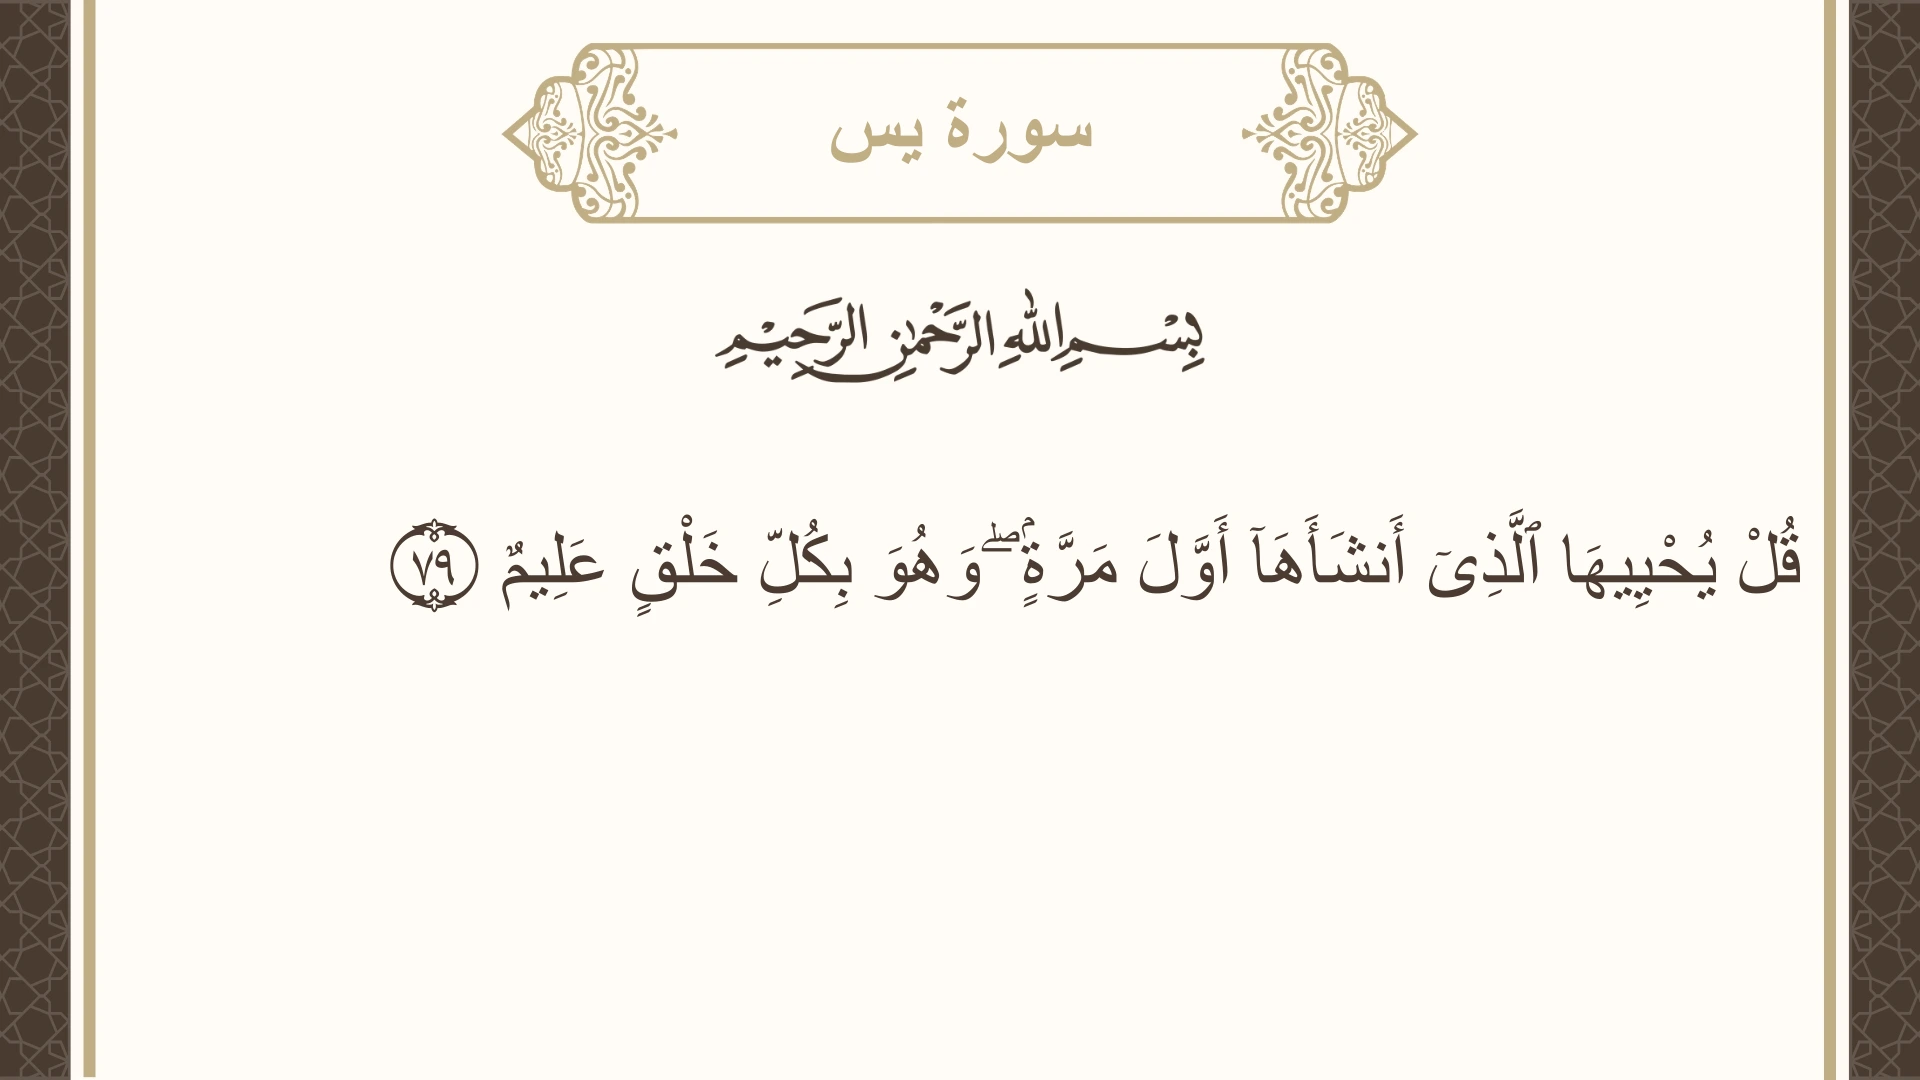 سورة يس
بِسْمِ اللهِ الرَّحْمٰنِ الرَّحِيْمِ
قُلْ يُحْيِيهَا ٱلَّذِىٓ أَنشَأَهَآ أَوَّلَ مَرَّةٍۢ ۖ وَهُوَ بِكُلِّ خَلْقٍ عَلِيمٌ ٧٩